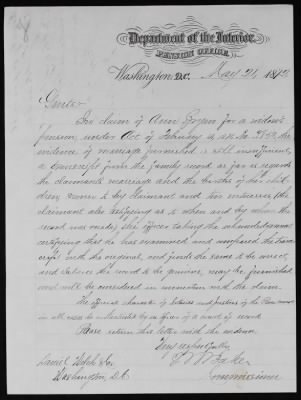 Department of the Interior,
PENSION OFFICE,
Washington, D.C. May 21, 1872
Gents:
In claim of Ann for a widow's
pension, under Act of February 14, the
evidence of marriage furnished is still insufficient,
a transcript from the family record as far as regards
the claimant's marriage and the births of her chil-
dren, sworn to by claimant and two witnesses, (the
claimant also testifying as to when and by whom the
record was made,) the officer taking the
certifying that he has examined and compared the trans-
cript with the original, and finds the same to be correct,
and believes the record to be genuine, may be furnished
and will be considered in connection with the claim.
The official character of Notaries and Justices of the Peace must
in all cases be authenticated by a Clerk of a court of record
Please return this letter with the evidence.
Very respectfully
J H Baker
Commissioner
Daniel
Washington, D.C.